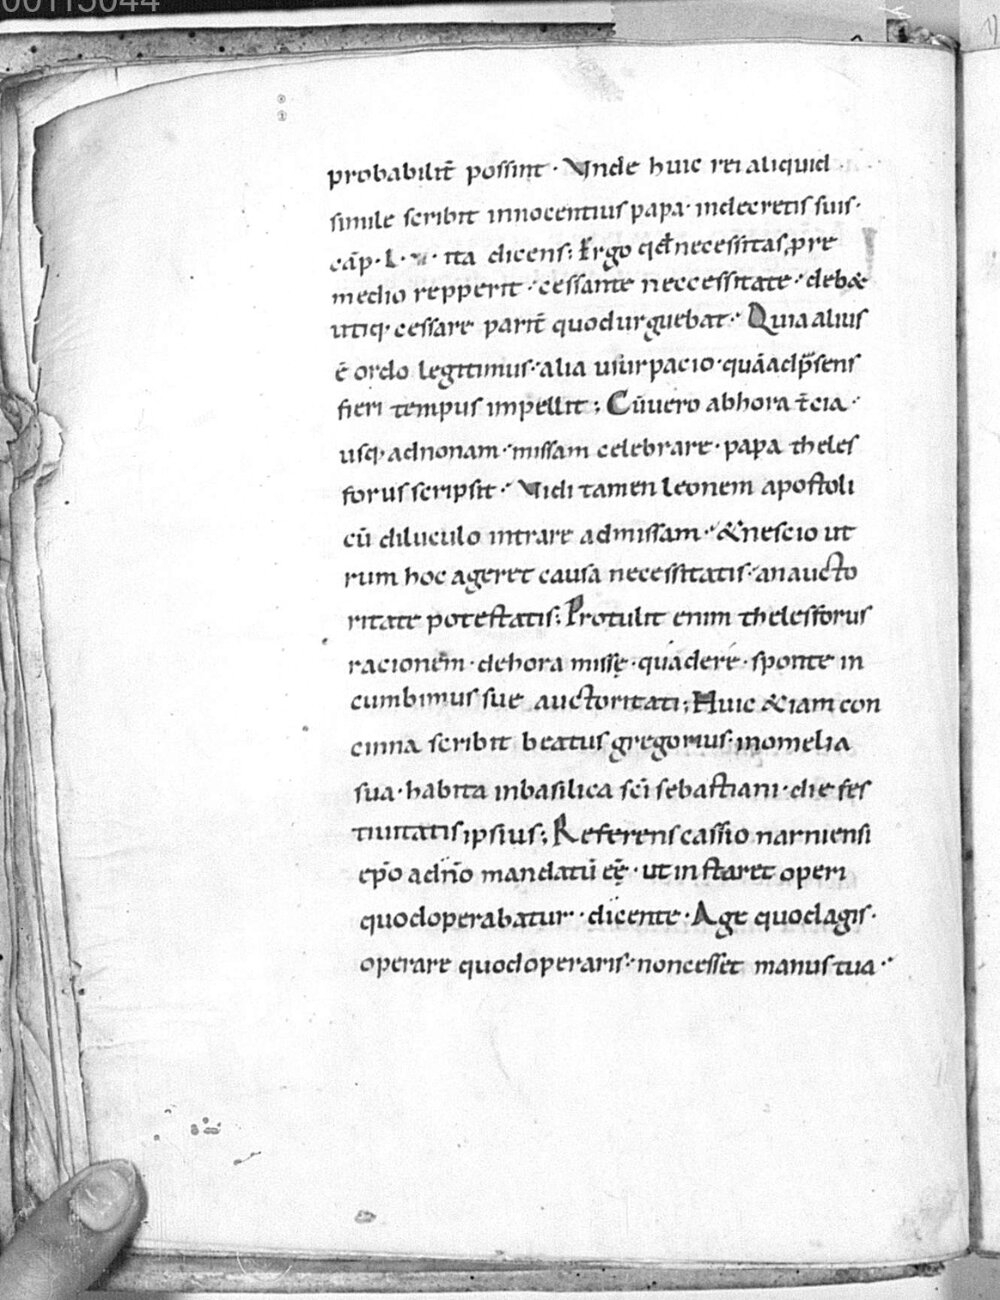 00115044
probabilit̄ possint · Vnde huic rei aliquid
simile scribit innocentius papa · indecretis suis ·
cāp · L · ita dicens : Ergo qđ necessitas, pre
medio repperit · cessante neccessitate · deb&
utiq · cessare parit̄ quodurguebat · Quia alius
ē ordo legitimus · alia usurpacio · quā adp̄sens
fieri tempus impellit ; Cūuero abhora t̄cia ·
usq · adnonam · missam celebrare · papa theles
forus scripsit · Vidi tamen leonem apostoli
cū diluculo intrare admissam · & nescio ut
rum hoc ageret causa necessitatis · an aucto
ritate potestatis : Protulit enim thelesforus
racionem · dehora missę · qua dere · sponte in
cumbimus sue auctoritati ; Huic &iam con
cinna scribit beatus gregorius · inomelia
sua · habita inbasilica sc̄i sebastiani · die fes
tiuitatis ipsius ; Referens cassio narniensi
ep̄o adn̄o mandatū eę̄ · ut instaret operi
quodoperabatur · dicente · Age quodagis ·
operare quodoperaris · noncesset manus tua ·